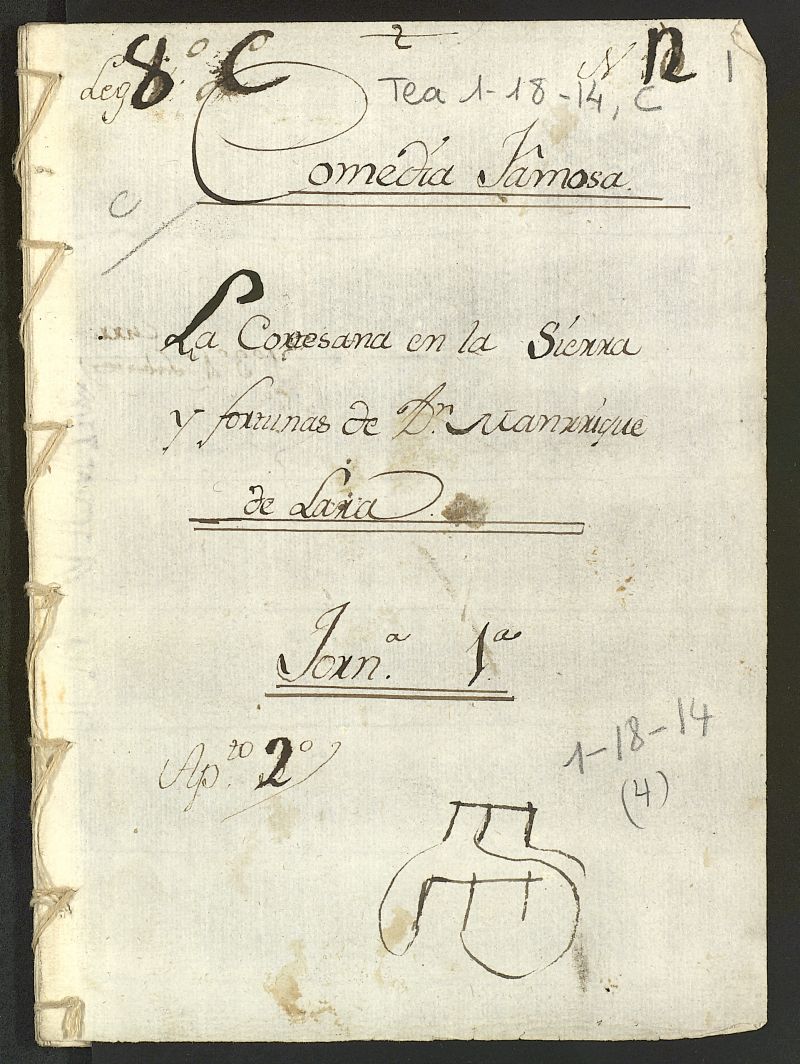 2
Leg.º 8º C N 12 1
Tea 1-18-14, C
Comedia Famosa.
C
La Cortesana en la Sierra
y fortunas de Dn. Manrrique
de Lara.
Jorn.ª 1ª
Ap.to 2º
1-18-14
(4)